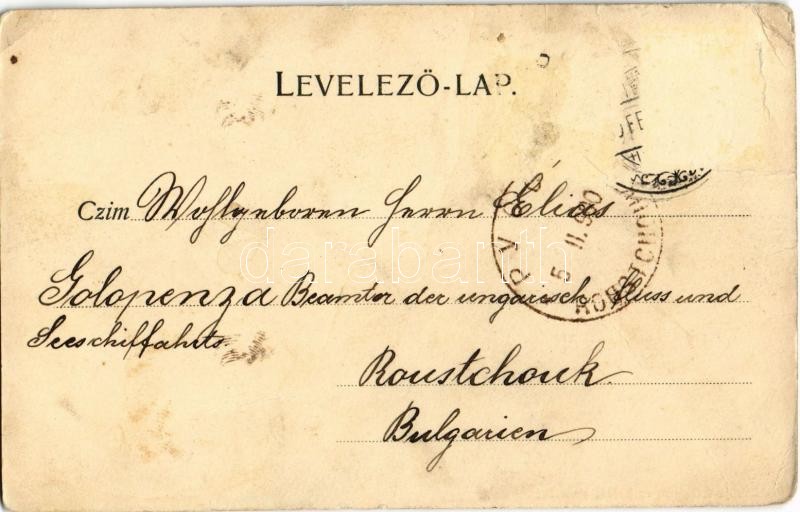 LEVELEZŐ-LAP.
Czim Wohlgeboren Herrn Elias
Golopenza Beamter der ungarisch. Fluss und
Seeschiffahrts.
Roustchouk
Bulgarien
5 II. 900
darabanth